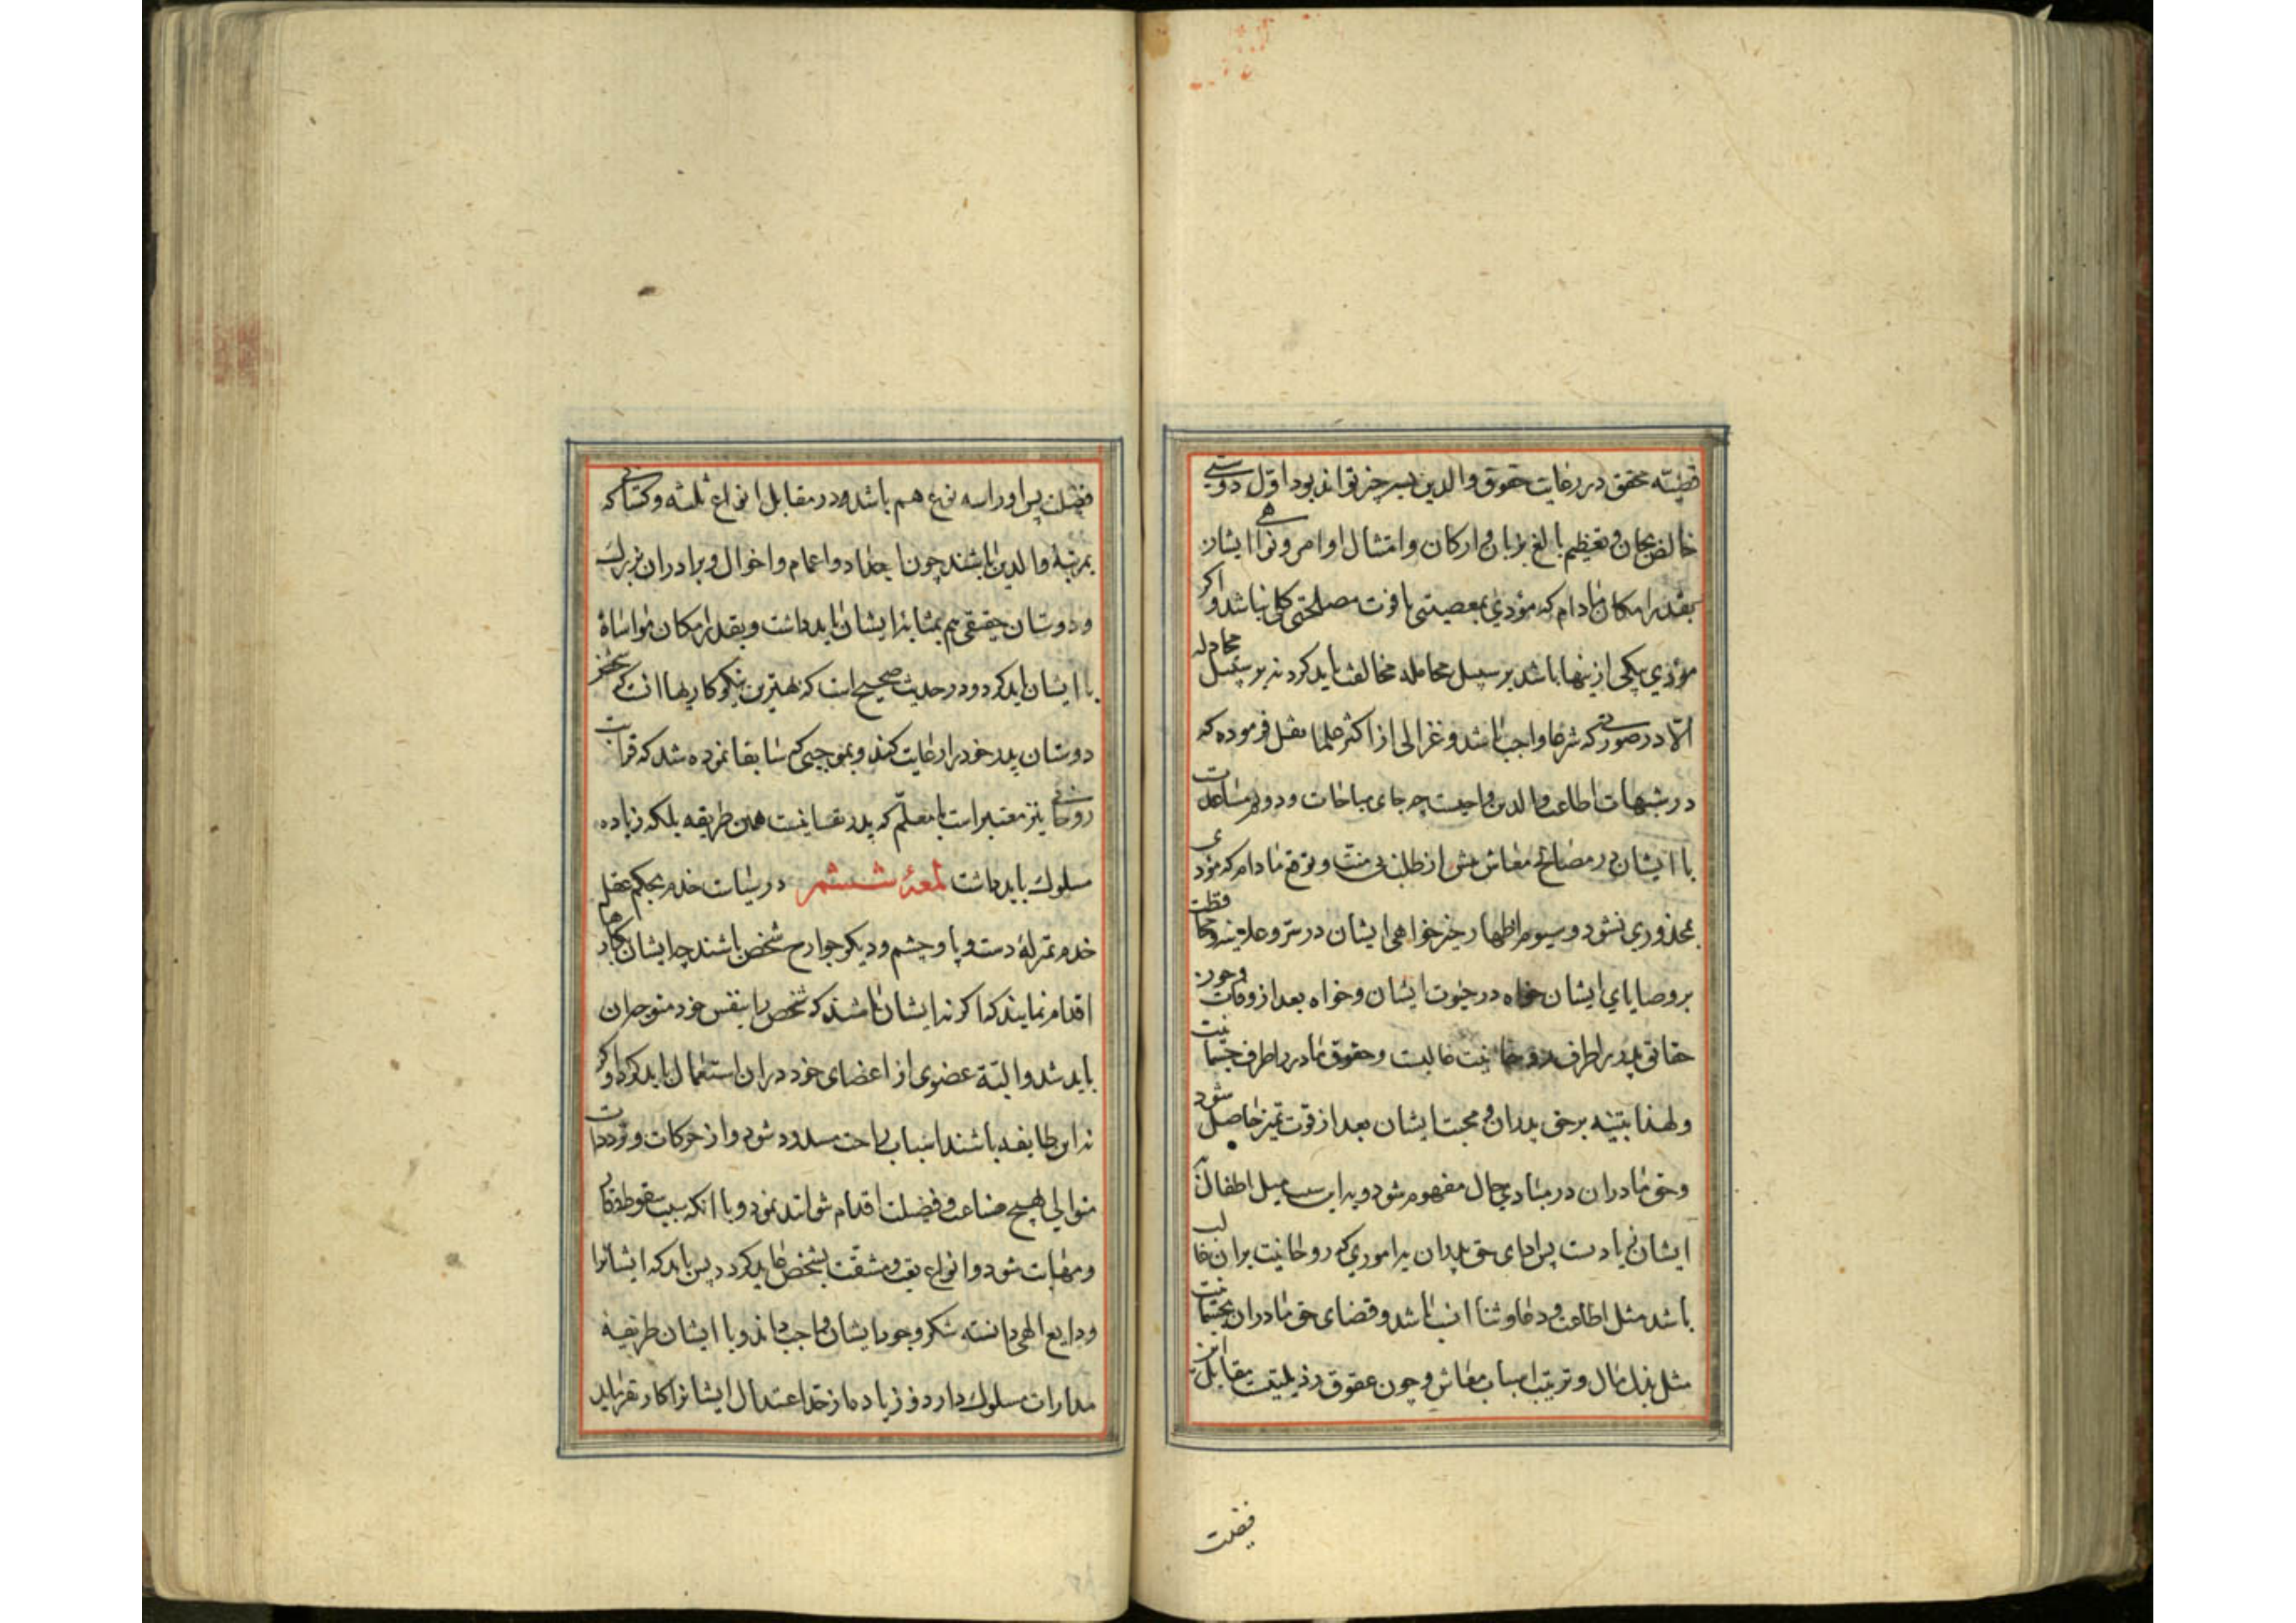 قضیّه محقق در رعایت حقوق والدین بسه چیز تواند بود اوّل دوستی
خالص بجان و تعظیم بالغ بزبان و ارکان و امتثال اوامر و نواهی ایشان
بقدر امکان مادام که مؤدی بمعصیتی یا فوت مصلحتی کلی نباشد و اکر
مؤدی بیکی ازینها باشد بر سبیل مجامله مخالفت باید کرد نه بر سبیل مجادله
الّا در صورتی که شرعا واجب باشد و غزالی از اکثر علما نقل فرموده که
در شبهات اطاعت والدین واجبست چه جای مباحات و دوم مساعدت
با ایشان در مصالح معاش پیش از طلب بی منّت و توقع مادام که مؤدی
بمحذوری نشود و سیوم اظهار خیرخواهی ایشان در سرّ و علانیه و محافظت
بر وصایای ایشان خواه در حیوت ایشان و خواه بعد از وفات و چون
حقایق پدر را طرف روحانیت غالبست و حقوق مادر را طرف جسمانیت
و لهذا تنبّه بر حق پدران و محبت ایشان بعد از قوت تمیز حاصل شود
و حق مادران در مبادی حال مفهوم شود و بدین سبب میل اطفال به
ایشان زیادت پس ادای حق پدران باموری که روحانیت بران غالب
باشد مثل اطاعت و دعا و ثنا انسب باشد و قضای حق مادران بجسمانیت
مثل بذل مال و ترتیب اسباب معاش و چون عقوق رذیلتیست مقابل این
فضیلت
فضیلت پس او را سه نوع هم باشد در مقابل انواع ثلثه و کسانی که
بمرتبهٔ والدین باشند چون اجداد و اعمام و اخوال و برادران بزرک
و دوستان حقیقی هم بمثابهٔ ایشان باید داشت و بقدر امکان مواساة
با ایشان باید کرد و در حدیث صحیح است که بهترین نیکو کاریها انست که شخص
دوستان پدر خود را رعایت کند و بموجبی که سابقا نموده شد که قرابت
روحانی نیز معتبر است با معلّم که پدر نفسانیست همین طریقه بلکه زیاده
مسلوک باید داشت لمعهٔ ششم در سیاست خدم بحکم عقل
خدم بمنزلهٔ دست و پا و چشم و دیکر جوارح شخص باشند چه ایشان بکارها
اقدام نمایند که اکر نه ایشان باشند که شخص را بنفس خود متوجه ان
باید شد و البتّه عضوی از اعضای خود در ان استعمال باید کرد و اکر
نه این طایفه باشند اسباب راحت مسدود شود و از حرکات و ترددات
متوالی بهیچ صناعت و فضیلت اقدام نتوانند نمود و با انکه سبب سقوط وقار
و مهابت شود و انواع تعب و مشقّت بشخص عاید کردد پس باید که ایشانرا
ودایع الهی دانسته شکر وجود ایشان واجب داند و با ایشان طریقهٔ
مدارات مسلوک دارد و زیاده از حد اعتدال ایشانرا کار نفرماید